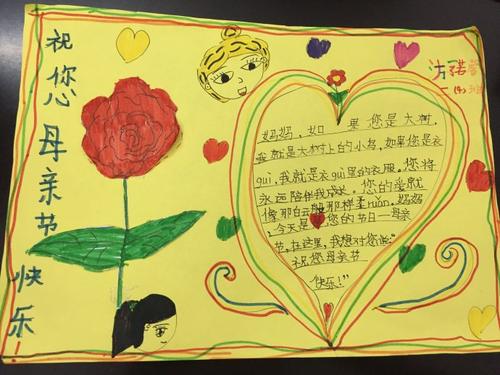 祝您母亲节快乐!
妈妈,如果您是大树,
我就是大树上的小鸟,如果您是衣
guì,我就是衣guì里的衣服。您将
永远陪伴我成长。您的爱就
像那白云那样柔ruǎn,妈妈
,今天是您的节日—母亲
节,在这里,我想对您说:“
祝您母亲节
快乐!”